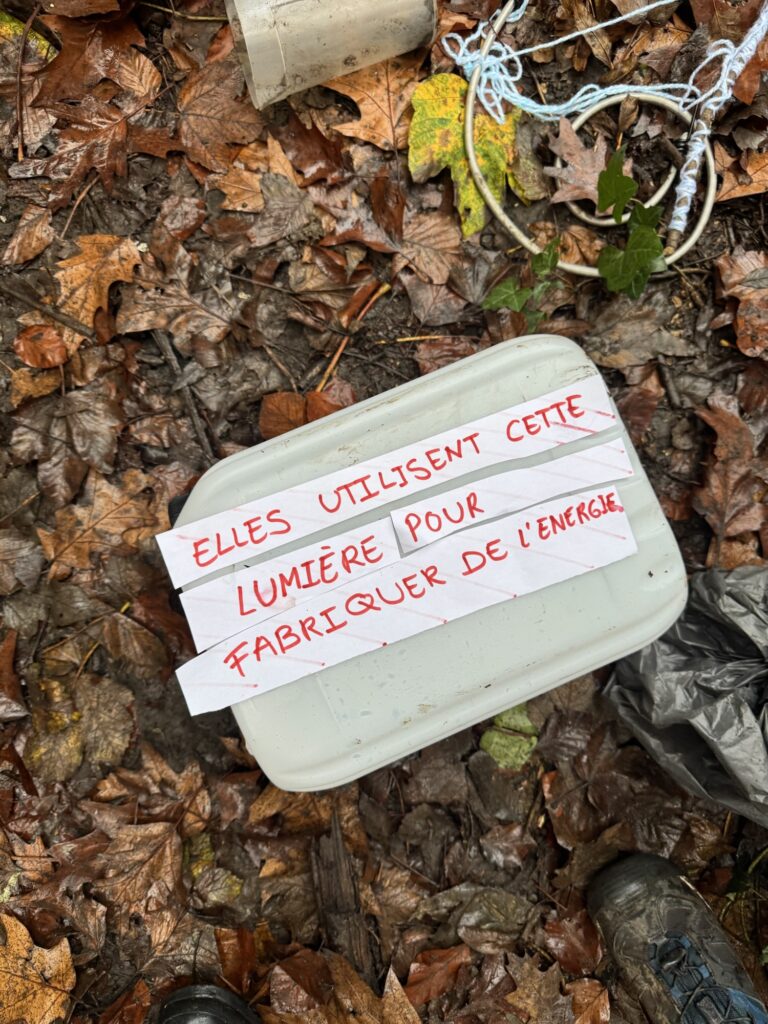 ELLES UTILISENT CETTE
LUMIÈRE POUR
FABRIQUER DE L'ENERGIE.